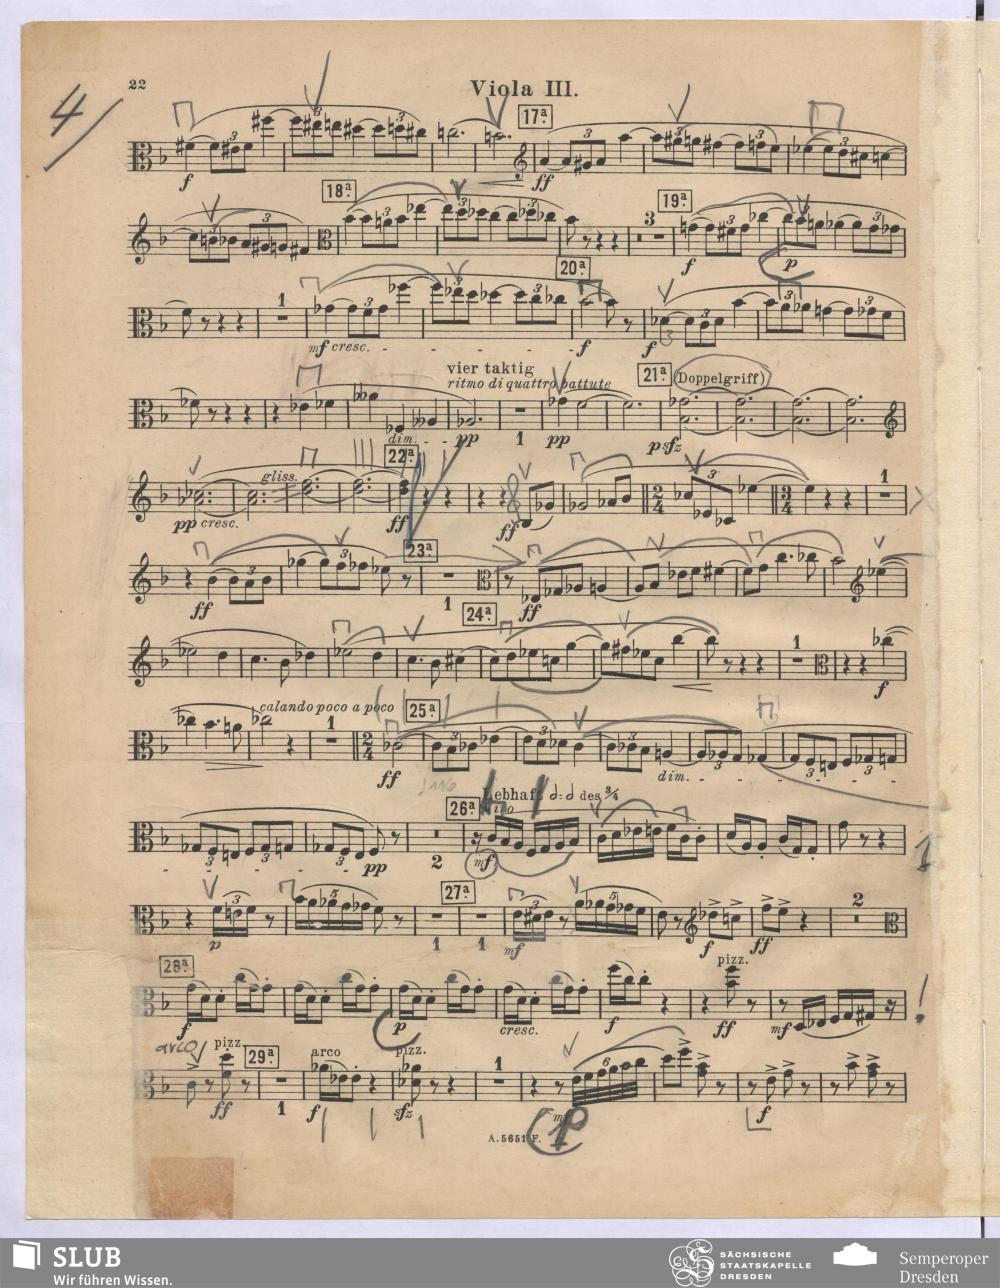 4
22
Viola III.
17a.
f
ff
18a.
19a.
3
f
p
20a.
1
mf cresc.
f
f
vier taktig
ritmo di quattro battute
21a.
(Doppelgriff)
dim.
pp
1
pp
p sfz
gliss.
22a.
pp cresc.
ff
ff
1
23a.
ff
1
ff
24a.
1
f
calando poco a poco
25a.
1
ff
dim.
Lebhaft
des 3/4
26a.
pp
2
mf
27a.
p
1
1
mf
f
ff
2
28a.
pizz.
f
p
cresc.
f
ff
mf
arco
pizz.
29a.
arco
pizz.
ff
1
f
sfz
1
p
f
A. 5651 F.
SLUB
Wir führen Wissen.
SÄCHSISCHE
STAATSKAPELLE
DRESDEN
Semperoper
Dresden